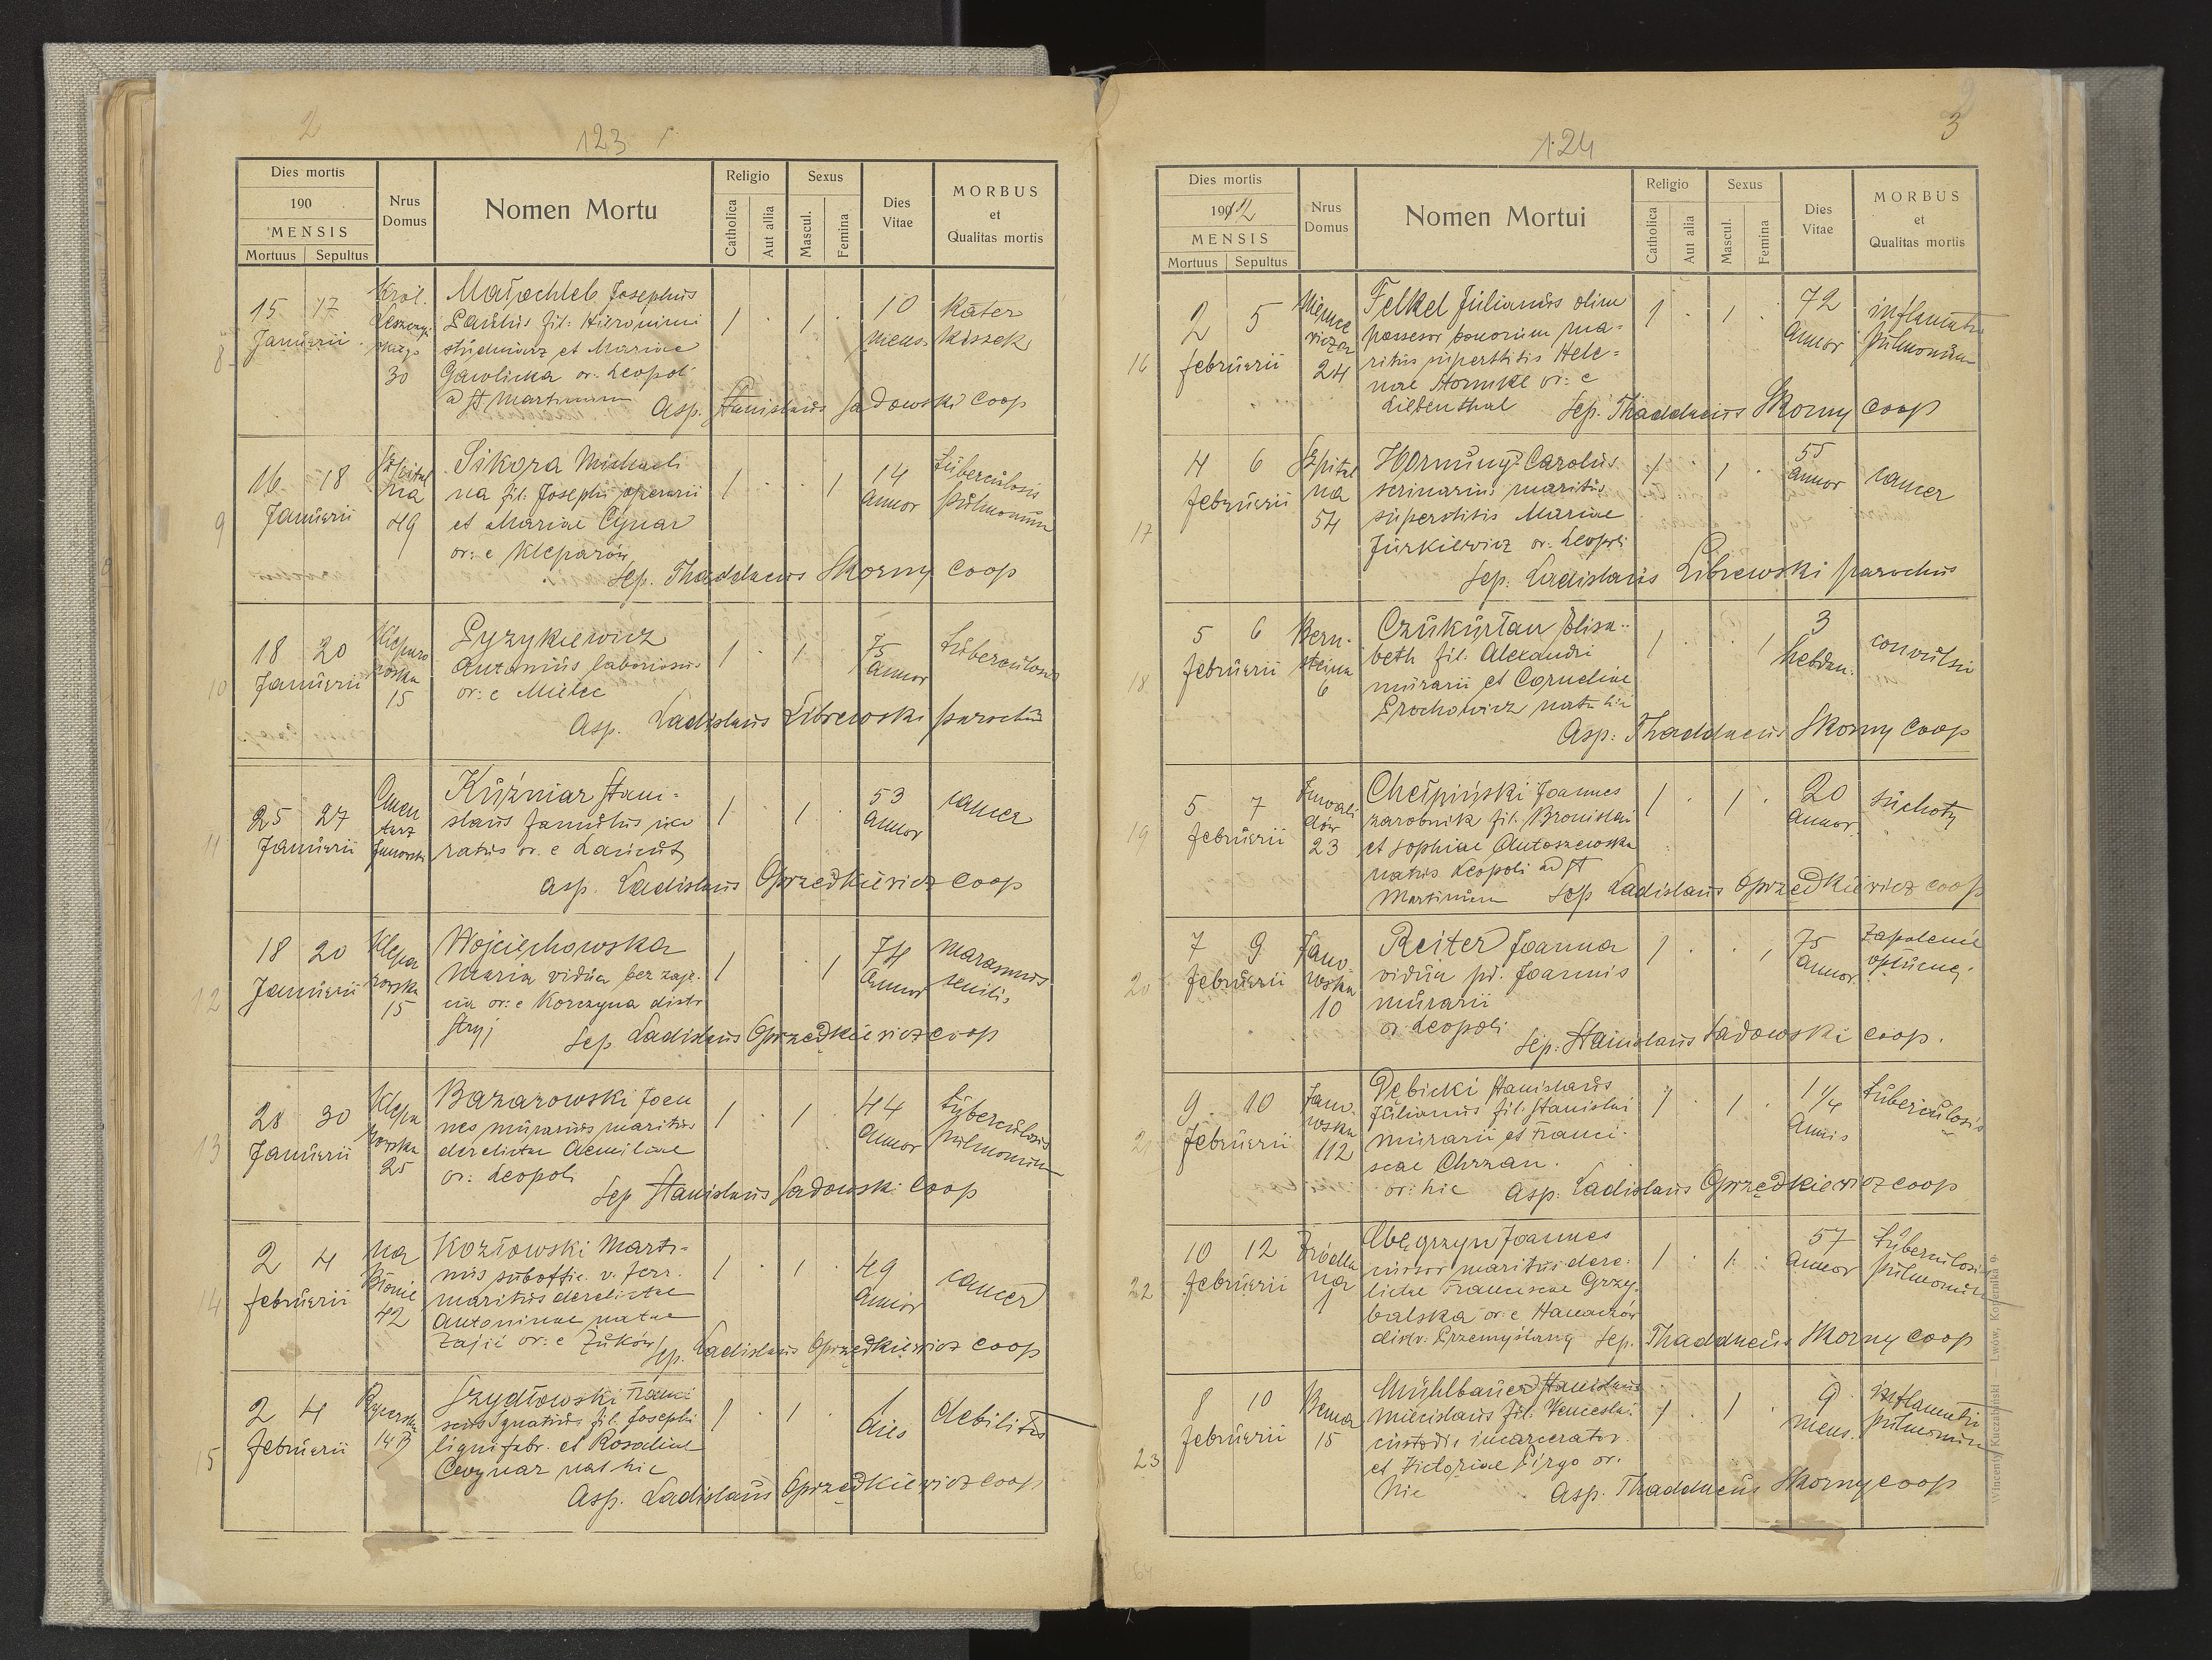 2
123
Dies mortis
190
MENSIS
Mortuus Sepultus
Nrus
Domus
Nomen Mortu
Religio
Catholica
Aut allia
Sexus
Mascul.
Femina
Dies
Vitae
MORBUS
et
Qualitas mortis
8
15 17
Januarii
Król.
Leszczyń
skiego
30
Małochleb Josephus
Paulus fil: Hieronimi
et Mariae
Gawlicka or: Leopoli
ad St Martinum
1 · 1 ·
10
mens.
Kater
Kiszek
Asp. Stanislaus Sadowski Coop
9
16 18
Januarii
Szpital
na
49
Sikora Michaeli
na fil: Josephi operarii
et Mariae Cynar
or: e Kleparów
1 · · 1
14
annor
tuberculosis
pulmonum
Sep. Thaddaeus Skorny coop
10
18 20
Januarii
Klepa
rowska
15
Pyzykiewicz
Antonius laboriosus
or: e Mielec
1 · 1 ·
75
annor
tuberculosis
Asp. Ladislaus Librewski parochus
11
25 27
Januarii
Cmen
tarz
Janowski
Kuźniar Stani-
slaus famulus
or. e Łańcut
1 · 1 ·
53
annor
cancer
Asp. Ladislaus Oprzędkiewicz coop
12
18 20
Januarii
Klepa
rowska
15
Wojciechowska
Maria vidua bez zaję.
cia or: e Korczyna distr
Stryj
1 · · 1
74
annor
marasmus
senilis
Sep Ladislaus Oprzędkiewicz coop
13
28 30
Januarii
Klepa
rowska
25
Bazarowski Joan
nes murarius maritus
derelictae Aemiliae
or: Leopoli
1 · 1 ·
44
annor
tuberculosis
pulmonum
Sep Stanislaus Sadowski Coop
14
2 4
februarii
Na
Błonie
42
Kozłowski Marti-
nus suboffic. v. ferr.
maritus derelictae
Antoninae natae
Zając or: e Żuków
1 · 1 ·
49
annor
cancer
Sep. Ladislaus Oprzędkiewicz coop
15
2 4
februarii
Rycerska
14 B
Szydłowski Franci
scus Ignatius fil. Josephi
lignifabr. et Rosaliae
nat hic
1 · 1 ·
1
dies
debilitas
Asp. Ladislaus Oprzędkiewicz coop
3
124
Dies mortis
1912
MENSIS
Mortuus Sepultus
Nrus
Domus
Nomen Mortui
Religio
Catholica
Aut alia
Sexus
Mascul.
Femina
Dies
Vitae
MORBUS
et
Qualitas mortis
16
2 5
februarii
Niemce
wicza
24
Felkel Julianus olim
possesor bonorum ma-
ritus superstitis Hele-
nae Hornike or: e
Lilienthal
1 · 1 ·
72
annor
inflamatio
pulmonum
Sep. Thaddaeus Skorny coop
17
4 6
februarii
Szpital
na
54
Hornung Carolus
scrinarius maritus
superstitis Mariae
Jurkiewicz or: Leopoli
1 · 1 ·
55
annor
cancer
Sep: Ladislaus Librewski parochus
18
5 6
februarii
Bern-
steina
6
Czukurtan Elisa-
beth fil: Alexandri
murarii et Corneliae
Prochowicz nat hic
1 · · 1
3
hebdm.
convulsi
Asp: Thaddaeus Skorny Coop
19
5 7
februarii
Inwali
dów
23
Chełpiński Joannes
zarobnik fil. Bronislai
et Sophiae Antoszewska
natus Leopoli ad St
Martinum
1 · 1 ·
20
annor.
suchoty
Sep Ladislaus Oprzędkiewicz coop
20
7 9
februarii
Jano
wska
10
Reiter Joanna
vidua p. Joannis
murarii
or: Leopoli
1 · · 1
75
annor.
zapalenie
opłucnej.
Sep: Stanislaus Sadowski coop.
21
9 10
februarii
Jano
wska
112
Dębicki Stanislaus
Julianus fil: Stanislai
murarii et Franci-
scae Chrzan.
or: hic
1 · 1 ·
1 1/4
annis
tuberculosis
Asp: Ladislaus Oprzędkiewicz coop
22
10 12
februarii
Źródla
na
1
Joannes
cursor maritus dere-
lictae Franciscae Grzy-
balska or: e Hanaczów
distr: Przemyślany
1 · 1 ·
57
annor
tuberculosis
pulmonum
Sep. Thaddaeus Skorny coop
23
8 10
februarii
Bema
15
Mühlbauer Stanislaus
Miecislaus fil: Venceslai
custodis incarcerator.
et Victoriae Pirgo or.
hic
1 · 1 ·
9
mens.
inflamatio
pulmonum
Asp. Thaddaeus Skorny coop
Wincenty Kuczabiński Lwów, Kopernika 9.